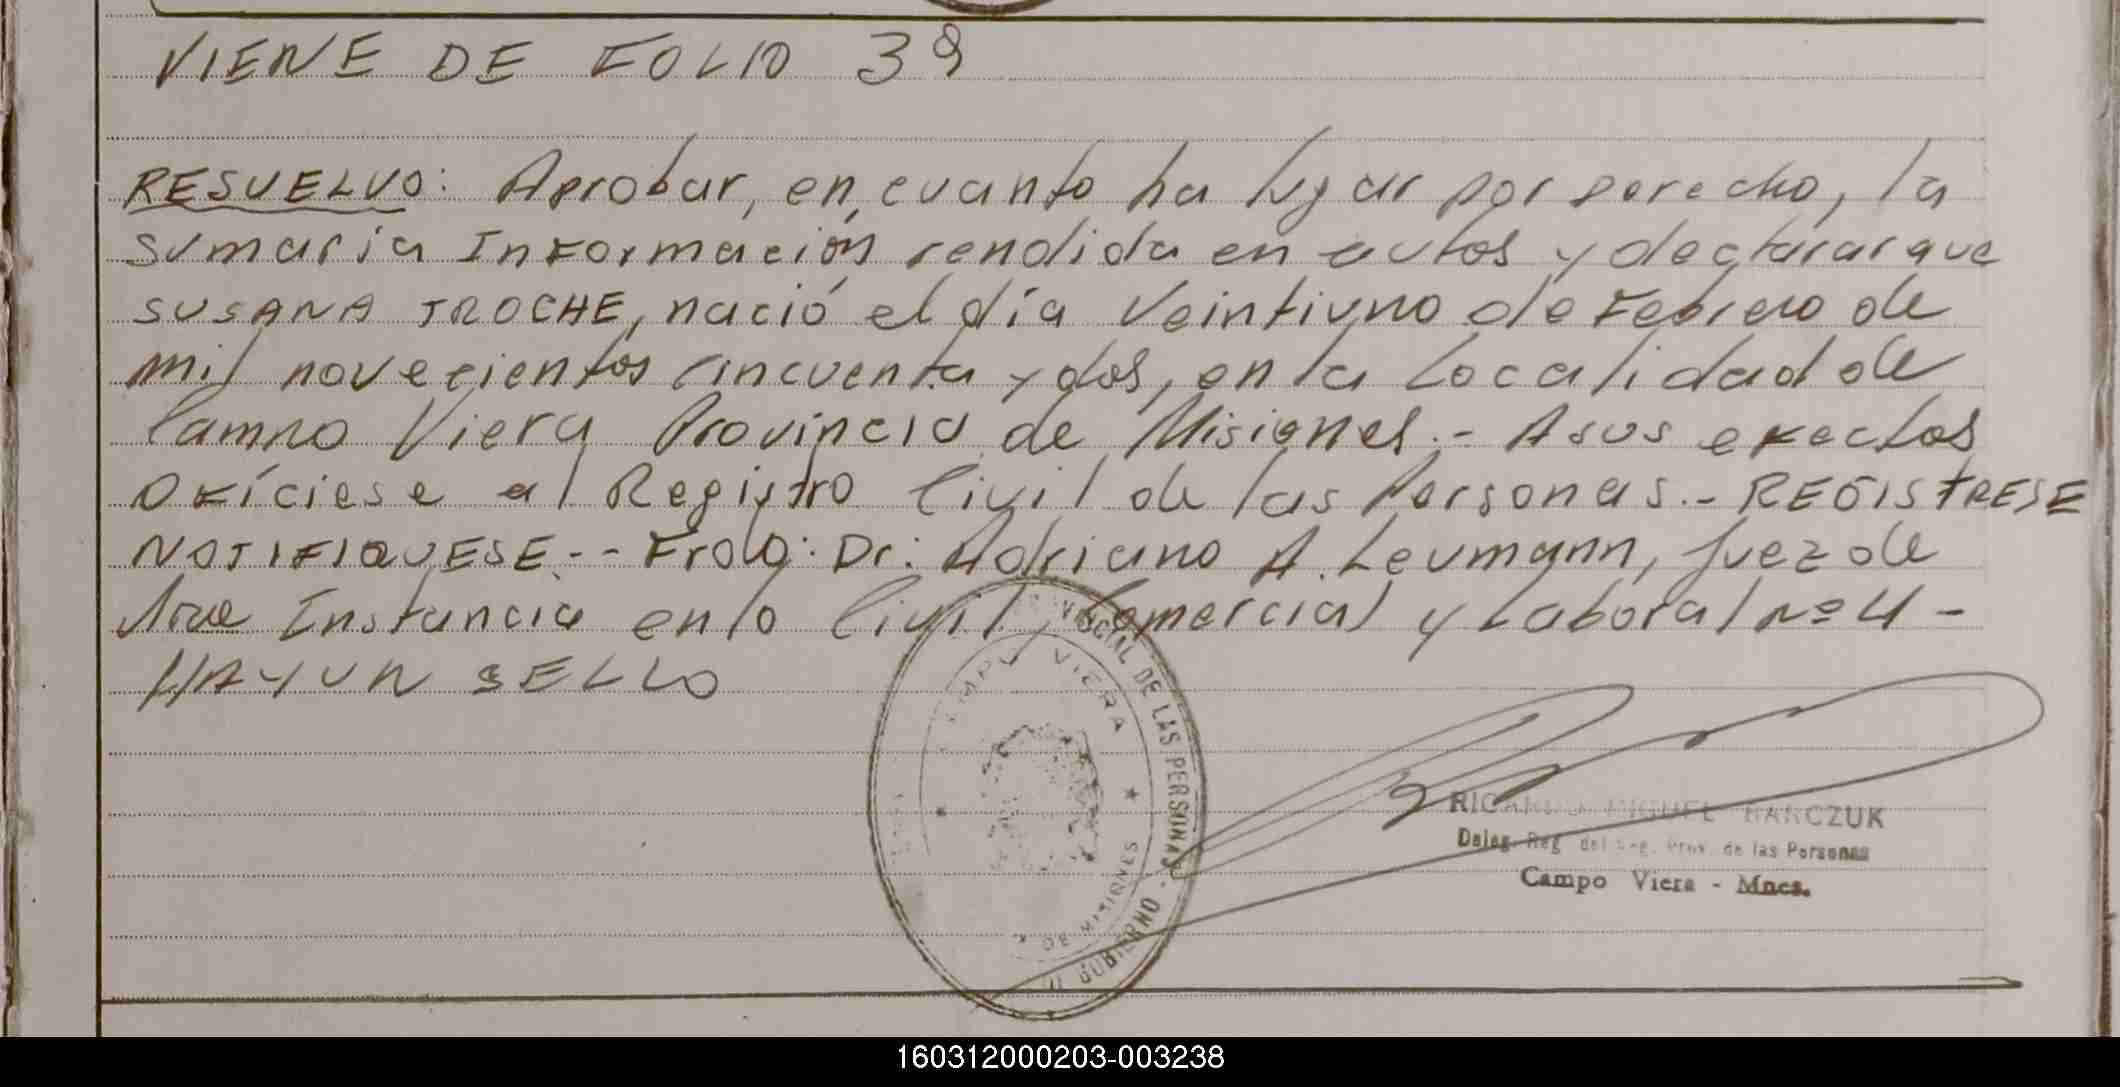 VIENE DE FOLIO 39
RESUELVO: Aprobar, en cuanto ha lugar por derecho, la
sumaria Información rendida en autos y declarar que
SUSANA TROCHE, nació el día Veintiuno de Febrero de
mil novecientos cincuenta y dos, en la Localidad de
Campo Viera Provincia de Misiones.- A sus efectos
Ofíciese al Registro Civil de las Personas.- REGISTRESE
NOTIFIQUESE.-- Frdo: Dr. Adriano A. Leumann, Juez de
1ra Instancia en lo Civil, Comercial y Laboral Nº 4 -
HAY UN SELLO
CAMPO VIERA
DE LAS PERSONAS · GOBIERNO
DE MISIONES
RICARDO MIGUEL HARCZUK
Deleg. Reg. del Reg. Prov. de las Personas
Campo Viera - Mnes.
160312000203-003238